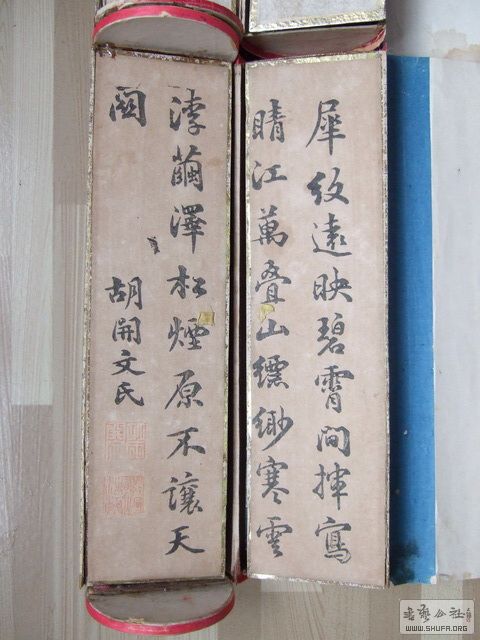 犀紋遠映碧霄間揮寫
晴江萬叠山縹緲寒雲
浮繭澤松煙原不讓天
闗
胡開文氏
書藝公社
WWW.SHUFA.ORG